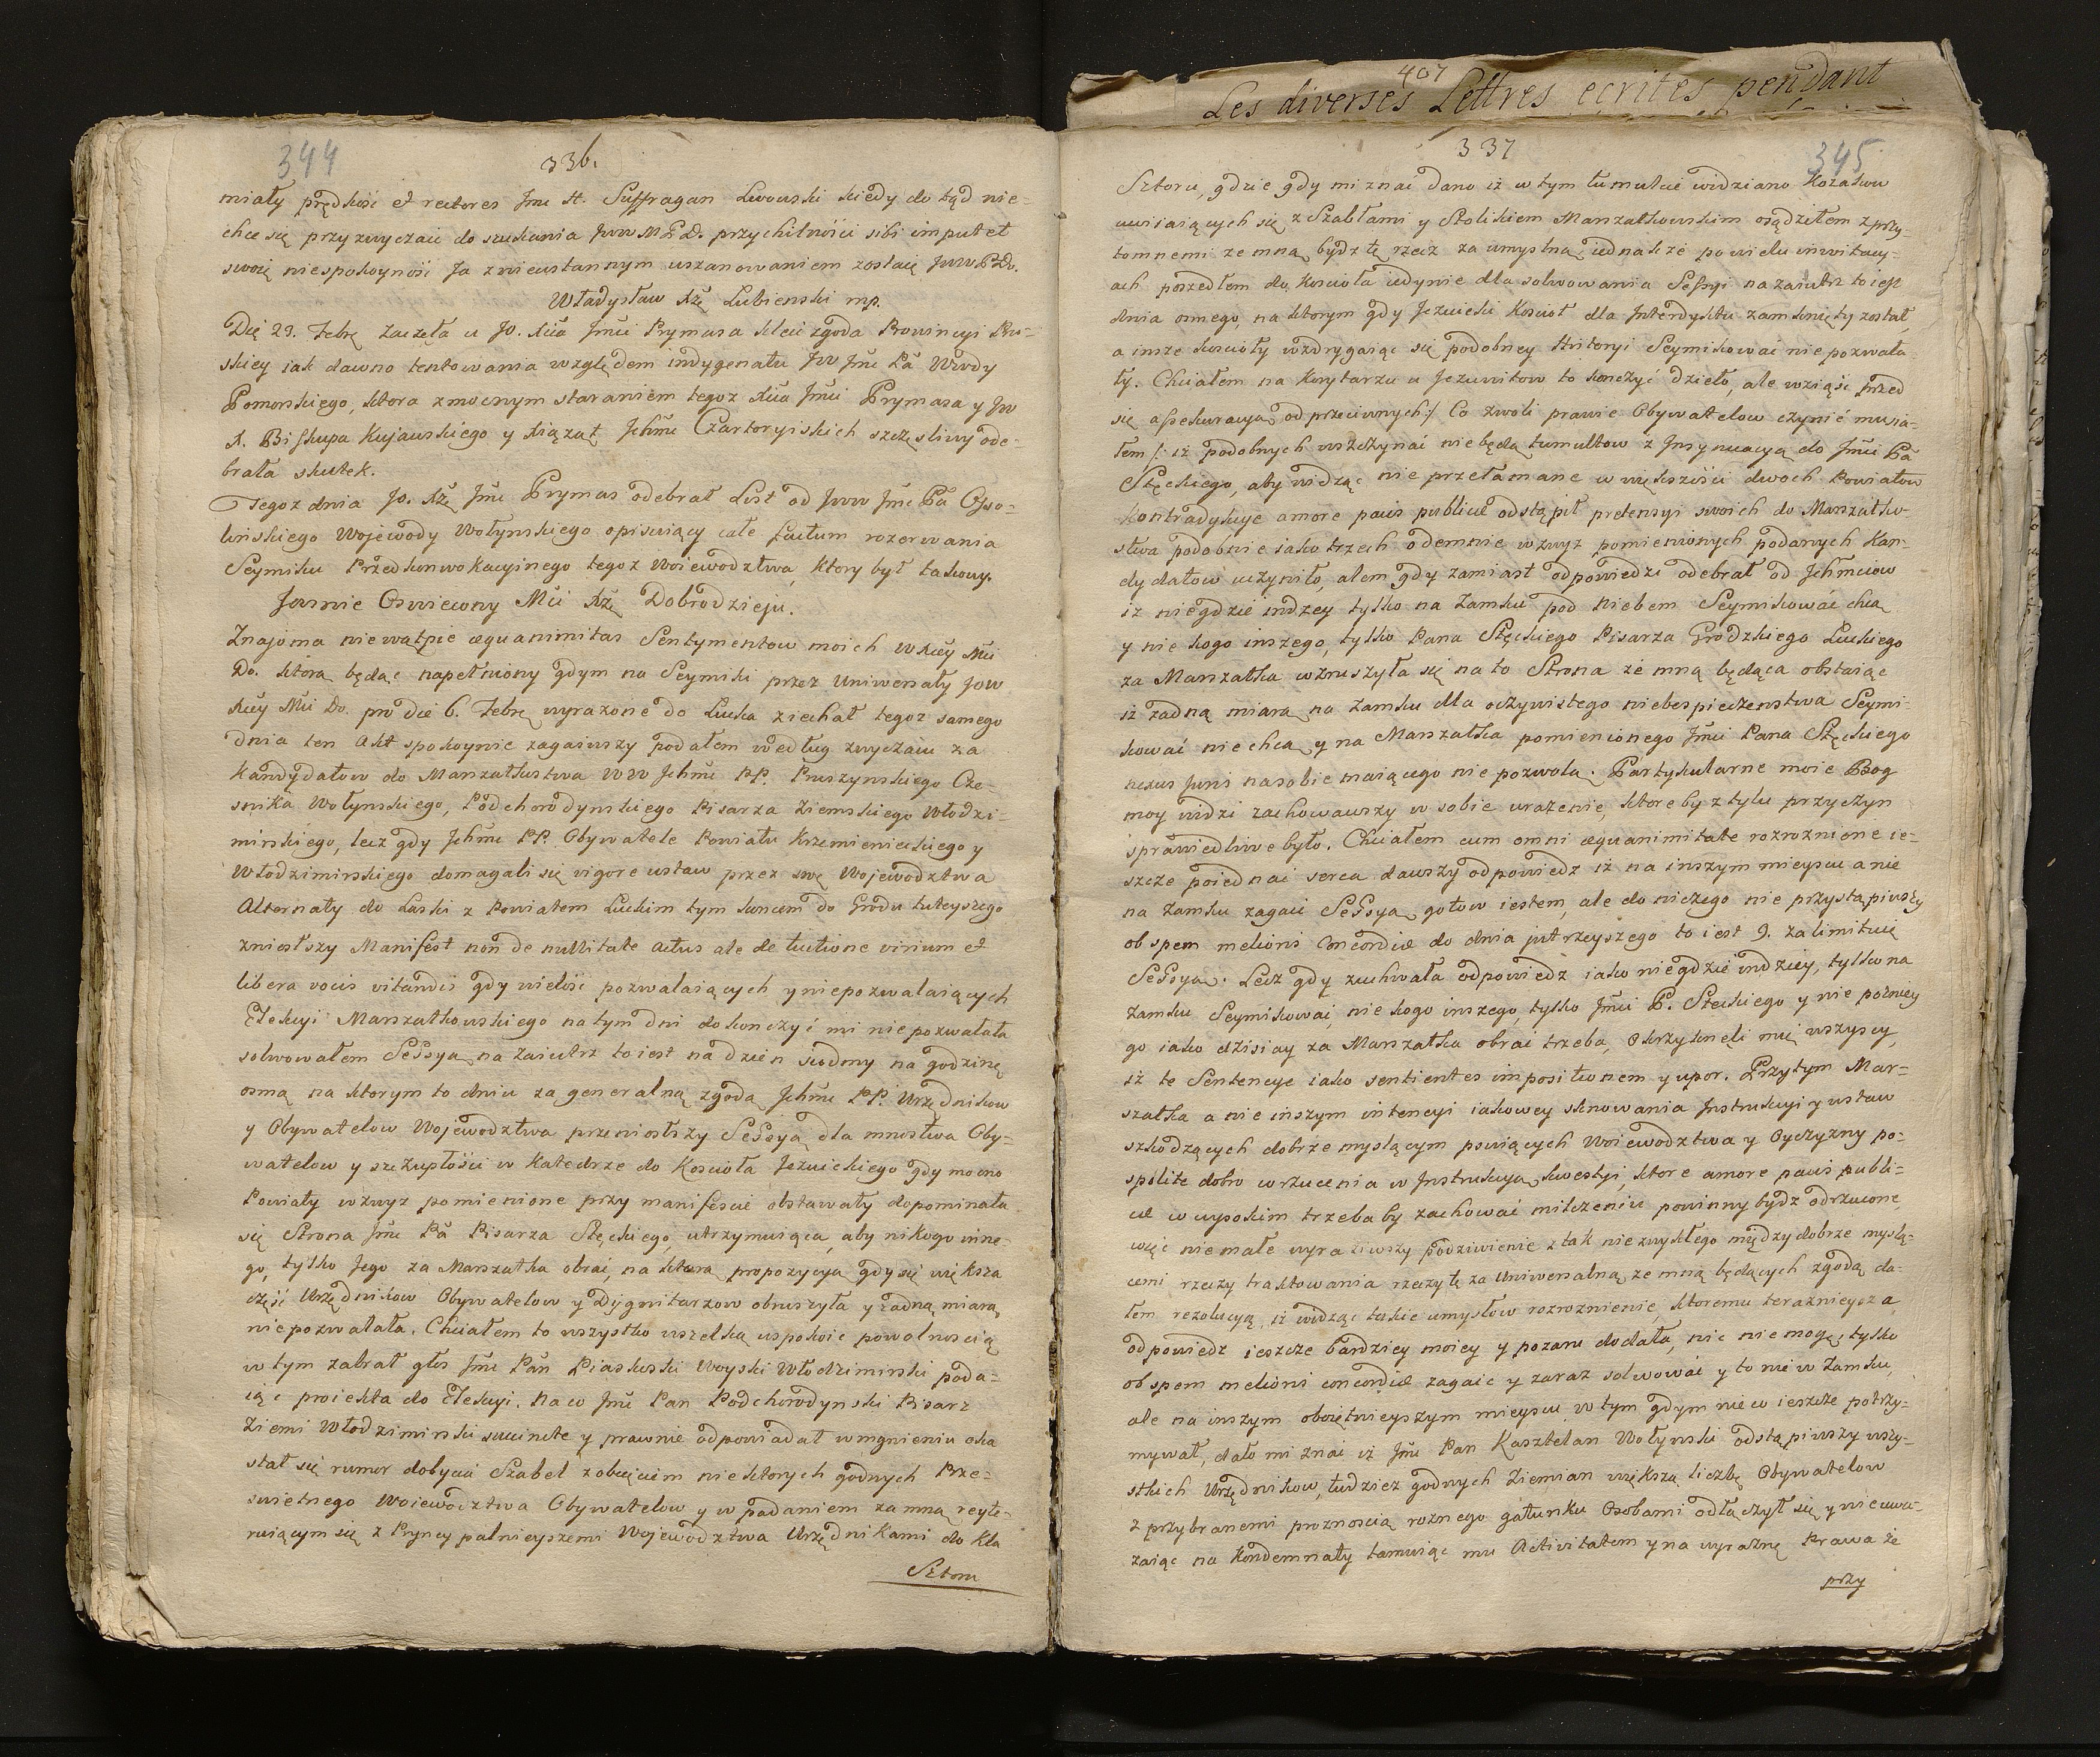 344
336.
miały prędkość et rectores Jmc X. Suffragan Lwowski kiedy do tąd nie-
chce się przyzwyczaic do szukania Jww M P D. przychilności sibi imputet
swoię niespokoyność Ja z nieustannym uszanowaniem zostaię Jww P Do.
Władysław Xżę Łubienski mp.
Die 29. Febr. zaczęła u Jo. Xcia Jmci Prymasa kleić zgoda Prowincyi Pru-
skiey iak dawno tentowania względem indygenatu Jw Jmc Pa Wwdy
Pomorskiego, ktora z mocnym staraniem tegoz Xcia Jmci Prymasa y Jw
X. Biskupa Kujawskiego y Xiążąt Jchmc Czartoryiskich szczęsliwy ode-
brała skutek.
Tegoz dnia Jo. Xżę Jmc Prymas odebrał List od Jww Jmc Pa Osso-
linskiego Wojewody Wołynskiego opisuiący całe factum rozerwania
Seymiku Przedkonwokacyinego tegoz Woiewodztwa, ktory był takowy.
Jasnie Oswiecony Mci Xżę Dobrodzieju.
Znajoma niewątpię æquanimitas Sentymentow moich WXcey Mci
Do. ktorą będąc napełniony gdym na Seymiki przez Uniwersały Jow
Xcey Mci Do. pro die 6. Febr. wyrazone do Łucka ziechał tegoz samego
dnia ten Akt spokoynie zagaiwszy podałem według zwyczaiu za
Kandydatow do Marszałkostwa WW Jchmc PP. Pruszynskiego Cze-
snika Wołynskiego, Podchorodynskiego Pisarza Ziemskiego Włodzi-
mirskiego, lecz gdy Jchmc PP. Obywatele Powiatu Krzemienieckiego y
Włodzimirskiego domagali się vigore ustaw przez swe Wojewodztwa
Alternaty do Laski z Powiatem Łuckim tym koncem do Grodu tuteyszego
zniosłszy Manifest non de nullitate actus ale de tuitione virium et
libera vocis vitandis gdy wielość pozwalaiących y niepozwalaiących
Elekcyi Marszałkowskiego na tym dni dokonczyć mi nie pozwałała
solwowałem Sessyą na zaiutrz to iest na dzien siodmy na godzinę
osmą na ktorym to dniu za generalną zgodą Jchmc PP. Urzędnikow
y Obywatelow Wojewodztwa przeniosłszy Sessyą dla mnostwa Oby-
watelow y szczupłości w Katedrze do Kosciola Jezuickiego gdy mocno
Powiaty wzwyz pomienione przy manifescie obstawały dopominała
się Strona Jmc Pa Pisarza Stęckiego, utrzymuiąca, aby nikogo inne-
go, tylko Jego za Marszałka obrać, na ktorą propozycyą gdy się większa
część Urzędnikow Obywatelow y Dygnitarzow obruszyła y żadną miarą
niepozwalała. Chciałem to wszystko wszelką uspokoic powolnoscią
w tym zabrał głos Jmc Pan Piaskoski Woyski Włodzimirski poda-
iąc proiekta do Elekcyi. Na co Jmc Pan Podchorodynski Pisarz
Ziemi Włodzimirski succincte y prawnie odpowiadał w mgnieniu oka
stał się rumor dobycia Szabel z obcięciem niektorych godnych Prze-
swietnego Woiewodztwa Obywatelow y wpadaniem za mną reyte-
ruiącym się z Pryncypalnieyszemi Wojewodztwa Urzędnikami do Kla
Sztoru
407
Les diverses Lettres ecrites pendant
337
345
Sztoru, gdzie gdy mi znać dano iz w tym tumulcie widziano Kozakow
uwiiaiących się z Szablami y Stolikiem Marszałkowskim osądziłem z przy-
tomnemi ze mną, bydz tę rzecz za umyslną, iednakze po wielu inwitacy-
ach poszedłem do Kosciola iedynie dla solwowania Sessyi na zaiutrz to iest
dnia osmego, na ktorym gdy Jezuicki Kosciol dla Interdyktu zamknięty został,
a insze koscioły wzdrygaiąc się podobney Historyi Seymikować nie pozwala-
ły. Chciałem na Korytarzu u Jezuitow to konczyć dzieło, ale wziąść przed
się assekuracyą od przeciwnych /: Co zwoli prawie Obywatelow czynić musia-
łem /: iz podobnych wszczynać nie będą tumultow z Insynuacyą do Jmci Pa
Stęckiego, aby widząc nie przełamane w większości dwoch Powiatow
Kontradykcye amore pacis publicæ odstąpił pretensyi swoich do Marszałko-
stwa podobnie iako trzech odemnie wzwyz pomienionych podanych Kan-
dydatow uczyniło, alem gdy zamiast odpowiedzi odebrał od Jchmciow
iz niegdzie indzey tylko na Zamku pod Niebem Seymikować chcą
y nie kogo inszego, tylko Pana Stęckiego Pisarza Grodzkiego Łuckiego
za Marszałka wzruszyła się na to Strona ze mną będąca obstaiąc
iz zadną miarą na Zamku dla oczywistego niebespieczenstwa Seymi-
kować nie chcą y na Marszałka pomienionego Jmci Pana Stęckiego
nexus juris na sobie maiącego nie pozwolą. Partykularne moie Bog
moy widzi zachowawszy w sobie urazenie, ktore by z tylu przyczyn
sprawiedliwe było. Chciałem cum omni æquanimitate rozroznione ie-
szcze poiednać serca dawszy odpowiedz iz na inszym mieyscu a nie
na Zamku zagaić Sessyą gotow iestem, ale do niczego nie przystąpiwszy
ob spem melioris concordiæ do dnia jutrzeyszego to iest 9. zalimituię
Sessyą. Lecz gdy zuchwała odpowiedz iako niegdzie indziey, tylko na
Zamku Seymikować, nie kogo inszego, tylko Jmci P. Steckiego y nie pozniey
go iako dzisiay za Marszałka obrać trzeba, okrzyknęli mię wszyscy,
iz te Sentencye iako sentientes impositionem y upor. Przytym Mar-
szałka a nie inszym intencyi iakowey sknowania Instrukcyi y ustaw
szkodzących dobrze myslącym psuiących Woiewodztwa y Oyczyzny po-
spolite dobro wrzucenia w Instrukcyą kwestyi, ktore amore pacis publi-
cæ w wysokim trzeba by zachować milczeniu powinny bydz odrzucone,
więc niemałe wyraziwszy podziwienie z tak niezwykłego między dobrze myslą-
cemi rzeczy traktowania rzeczy tę za Uniwersalną ze mną będących zgodą da-
łem rezolucyą, iz widząc takie umysłow rozroznienie, ktoremu teraznieysza
odpowiedz ieszcze bardziey moiey y pozaru dodała, nic nie mogę, tylko
ob spem melioris concordiæ zagaic y zaraz solwować y to nie w Zamku,
ale na inszym oboiętnieyszym mieyscu, w tym gdym nieco ieszcze potrzy-
mywał, dało mi znać iz Jmc Pan Kasztelan Wołynski odstąpiwszy wszy-
stkich Urzędnikow, tudziez godnych Ziemian większą liczbę Obywatelow
z przybranemi proznoscią roznego gatunku Osobami odłączył się y nieuwa-
zaiąc na Kondemnaty tamuiąc mu Activitatem y na wyrazne Prawa że
przy